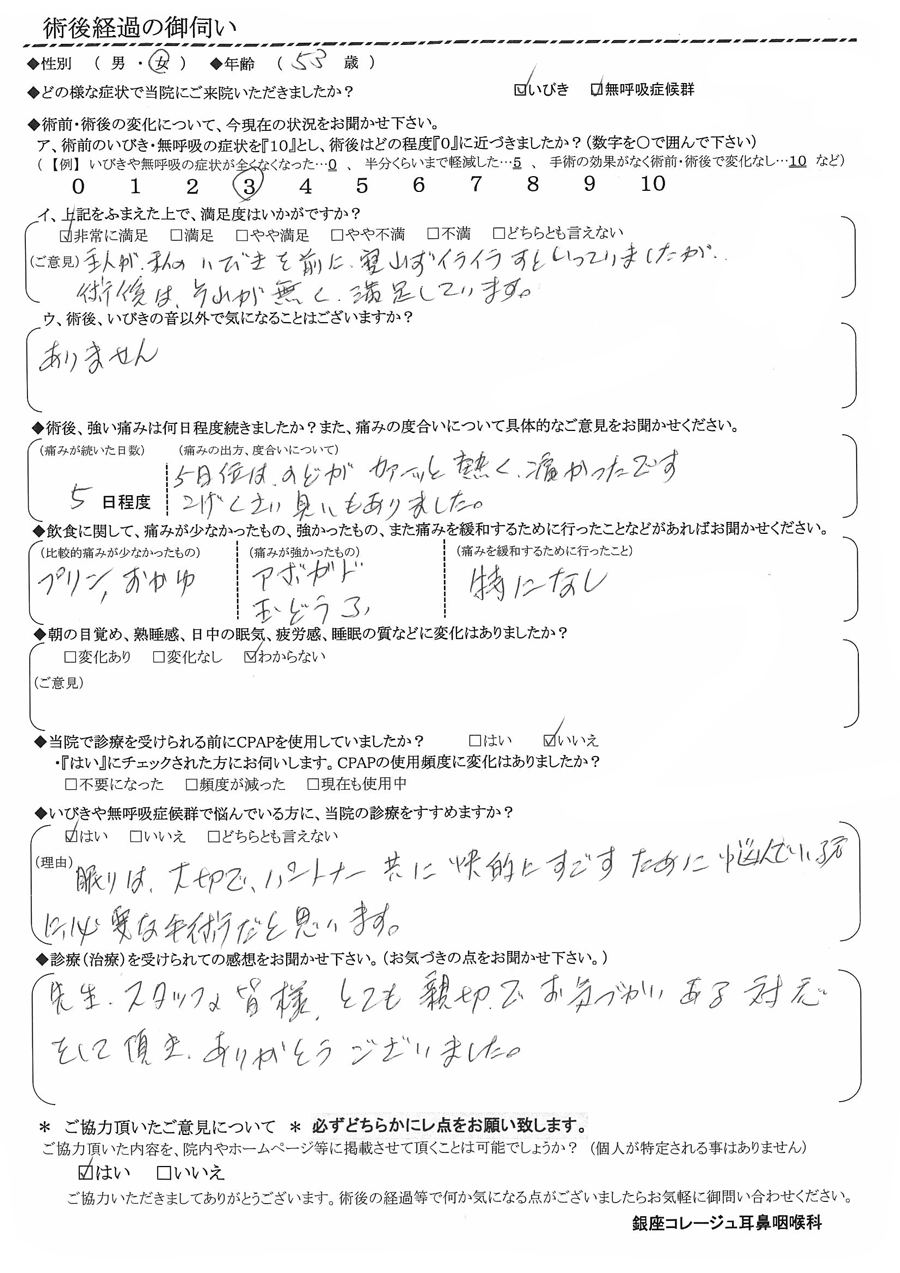 術後経過の御伺い
◆性別 ( 男 ・ 女 ) ◆年齢 ( 53 歳 )
◆どの様な症状で当院にご来院いただきましたか？ ☑いびき ☑無呼吸症候群
◆術前・術後の変化について、今現在の状況をお聞かせ下さい。
ア、術前のいびき・無呼吸の症状を『10』とし、術後はどの程度『0』に近づきましたか？(数字を○で囲んで下さい)
(【例】いびきや無呼吸の症状が全くなくなった…0 、 半分くらいまで軽減した…5 、 手術の効果がなく術前・術後で変化なし…10 など)
0 1 2 3 4 5 6 7 8 9 10
イ、上記をふまえた上で、満足度はいかがですか？
☑非常に満足 □満足 □やや満足 □やや不満 □不満 □どちらとも言えない
(ご意見) 主人が、私のいびきを前に、寝れずイライラすといっていましたが、
術後は、それが無く、満足しています。
ウ、術後、いびきの音以外で気になることはございますか？
ありません
◆術後、強い痛みは何日程度続きましたか？また、痛みの度合いについて具体的なご意見をお聞かせください。
(痛みが続いた日数) (痛みの出方、度合いについて)
5日位は、のどが カァーッと 熱く、痛かったです
5 日程度 こげくさい臭いもありました。
◆飲食に関して、痛みが少なかったもの、強かったもの、また痛みを緩和するために行ったことなどがあればお聞かせください。
(比較的痛みが少なかったもの) (痛みが強かったもの) (痛みを緩和するために行ったこと)
プリン, おかゆ アボガド 特になし
玉どうふ
◆朝の目覚め、熟睡感、日中の眠気、疲労感、睡眠の質などに変化はありましたか？
□変化あり □変化なし ☑わからない
(ご意見)
◆当院で診療を受けられる前にCPAPを使用していましたか？ □はい ☑いいえ
・『はい』にチェックされた方にお伺いします。CPAPの使用頻度に変化はありましたか？
□不要になった □頻度が減った □現在も使用中
◆いびきや無呼吸症候群で悩んでいる方に、当院の診療をすすめますか？
☑はい □いいえ □どちらとも言えない
(理由) 眠りは、大切で、パートナー 共に 快的にすごす ために 悩んでいる方
に、必要な手術だと思います。
◆診療(治療)を受けられての感想をお聞かせ下さい。(お気づきの点をお聞かせ下さい。)
先生、スタッフの皆様、とても 親切で お気づかい ある 対応
をして頂き、ありがとうございました。
＊ ご協力頂いたご意見について ＊ 必ずどちらかにレ点をお願い致します。
ご協力頂いた内容を、院内やホームページ等に掲載させて頂くことは可能でしょうか？ (個人が特定される事はありません)
☑はい □いいえ
ご協力いただきましてありがとうございます。術後の経過等で何か気になる点がございましたらお気軽に御問い合わせください。
銀座コレージュ耳鼻咽喉科